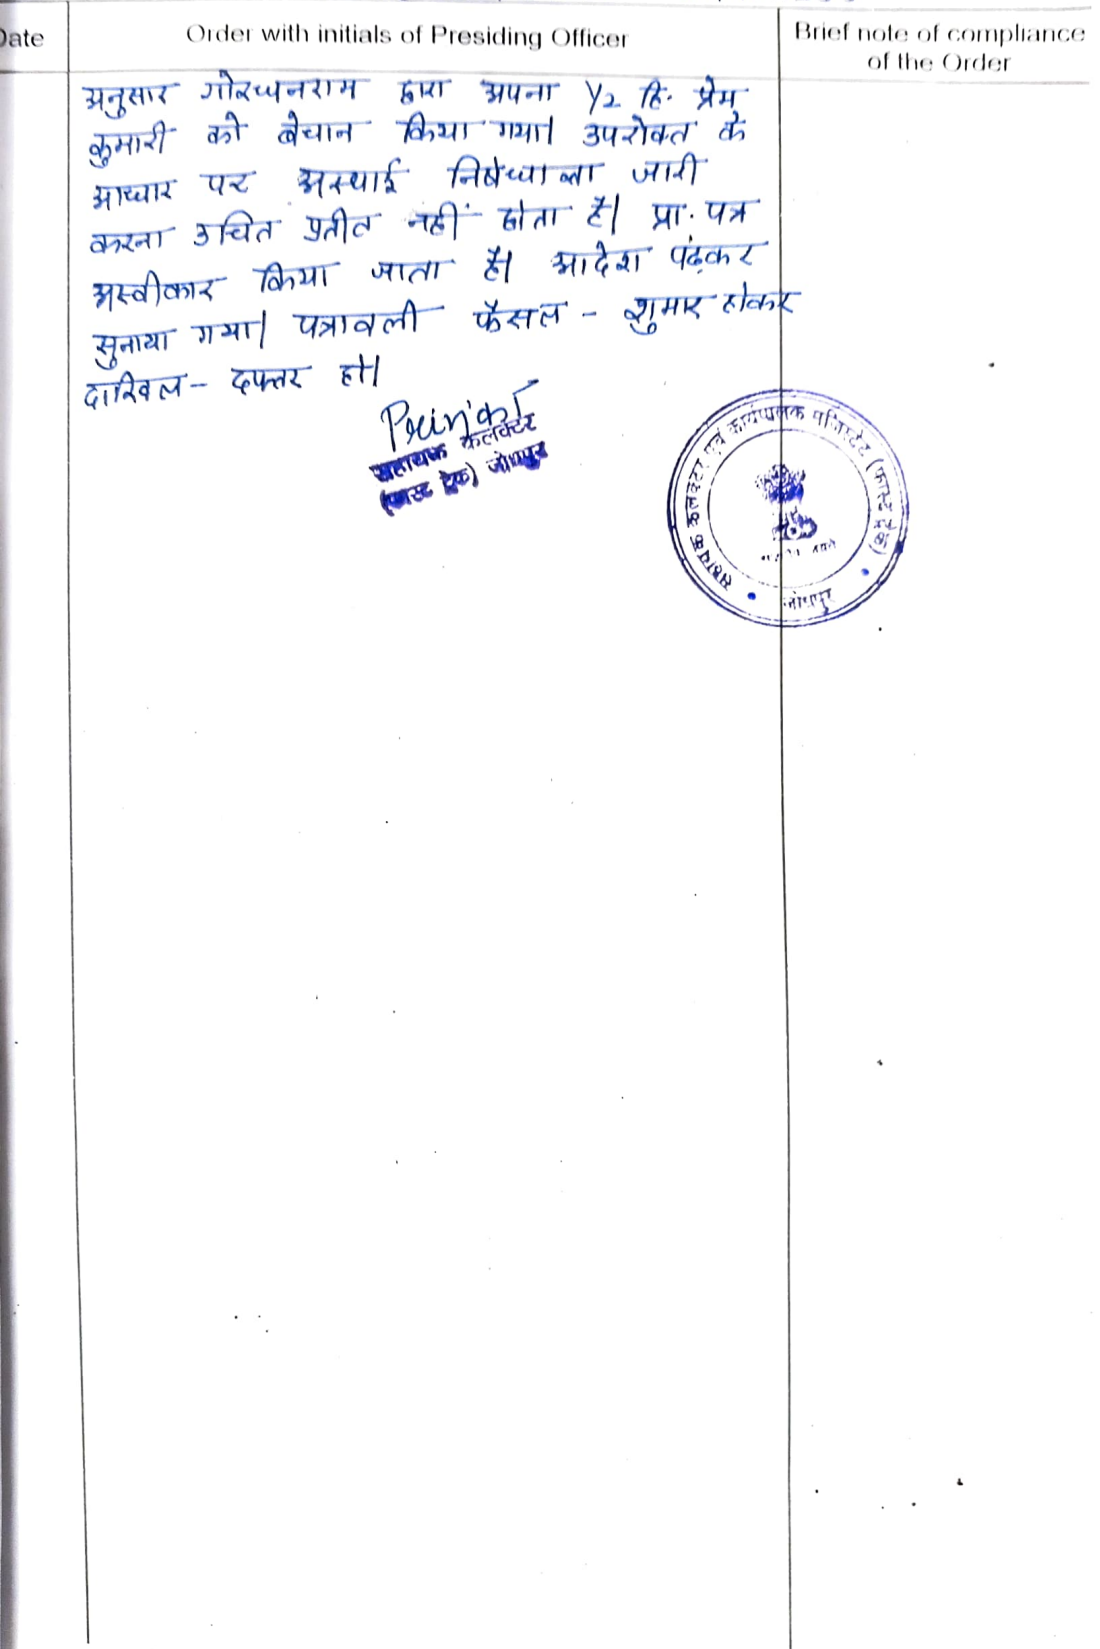 Date
Order with initials of Presiding Officer
Brief note of compliance
of the Order
अनुसार गोरधनराम द्वारा अपना 1/2 हि. प्रेम
कुमारी को बेचान किया गया। उपरोक्त के
आधार पर अस्थाई निषेधाज्ञा जारी
करना उचित प्रतीत नहीं होता है। प्रा. पत्र
अस्वीकार किया जाता है। आदेश पढ़कर
सुनाया गया। पत्रावली फैसल - शुमार होकर
दाखिल - दफ्तर हो।
सहायक कलक्टर
(फास्ट ट्रेक) जोधपुर
सहायक कलक्टर एवं कार्यपालक मजिस्ट्रेट (फास्ट ट्रेक)
जोधपुर